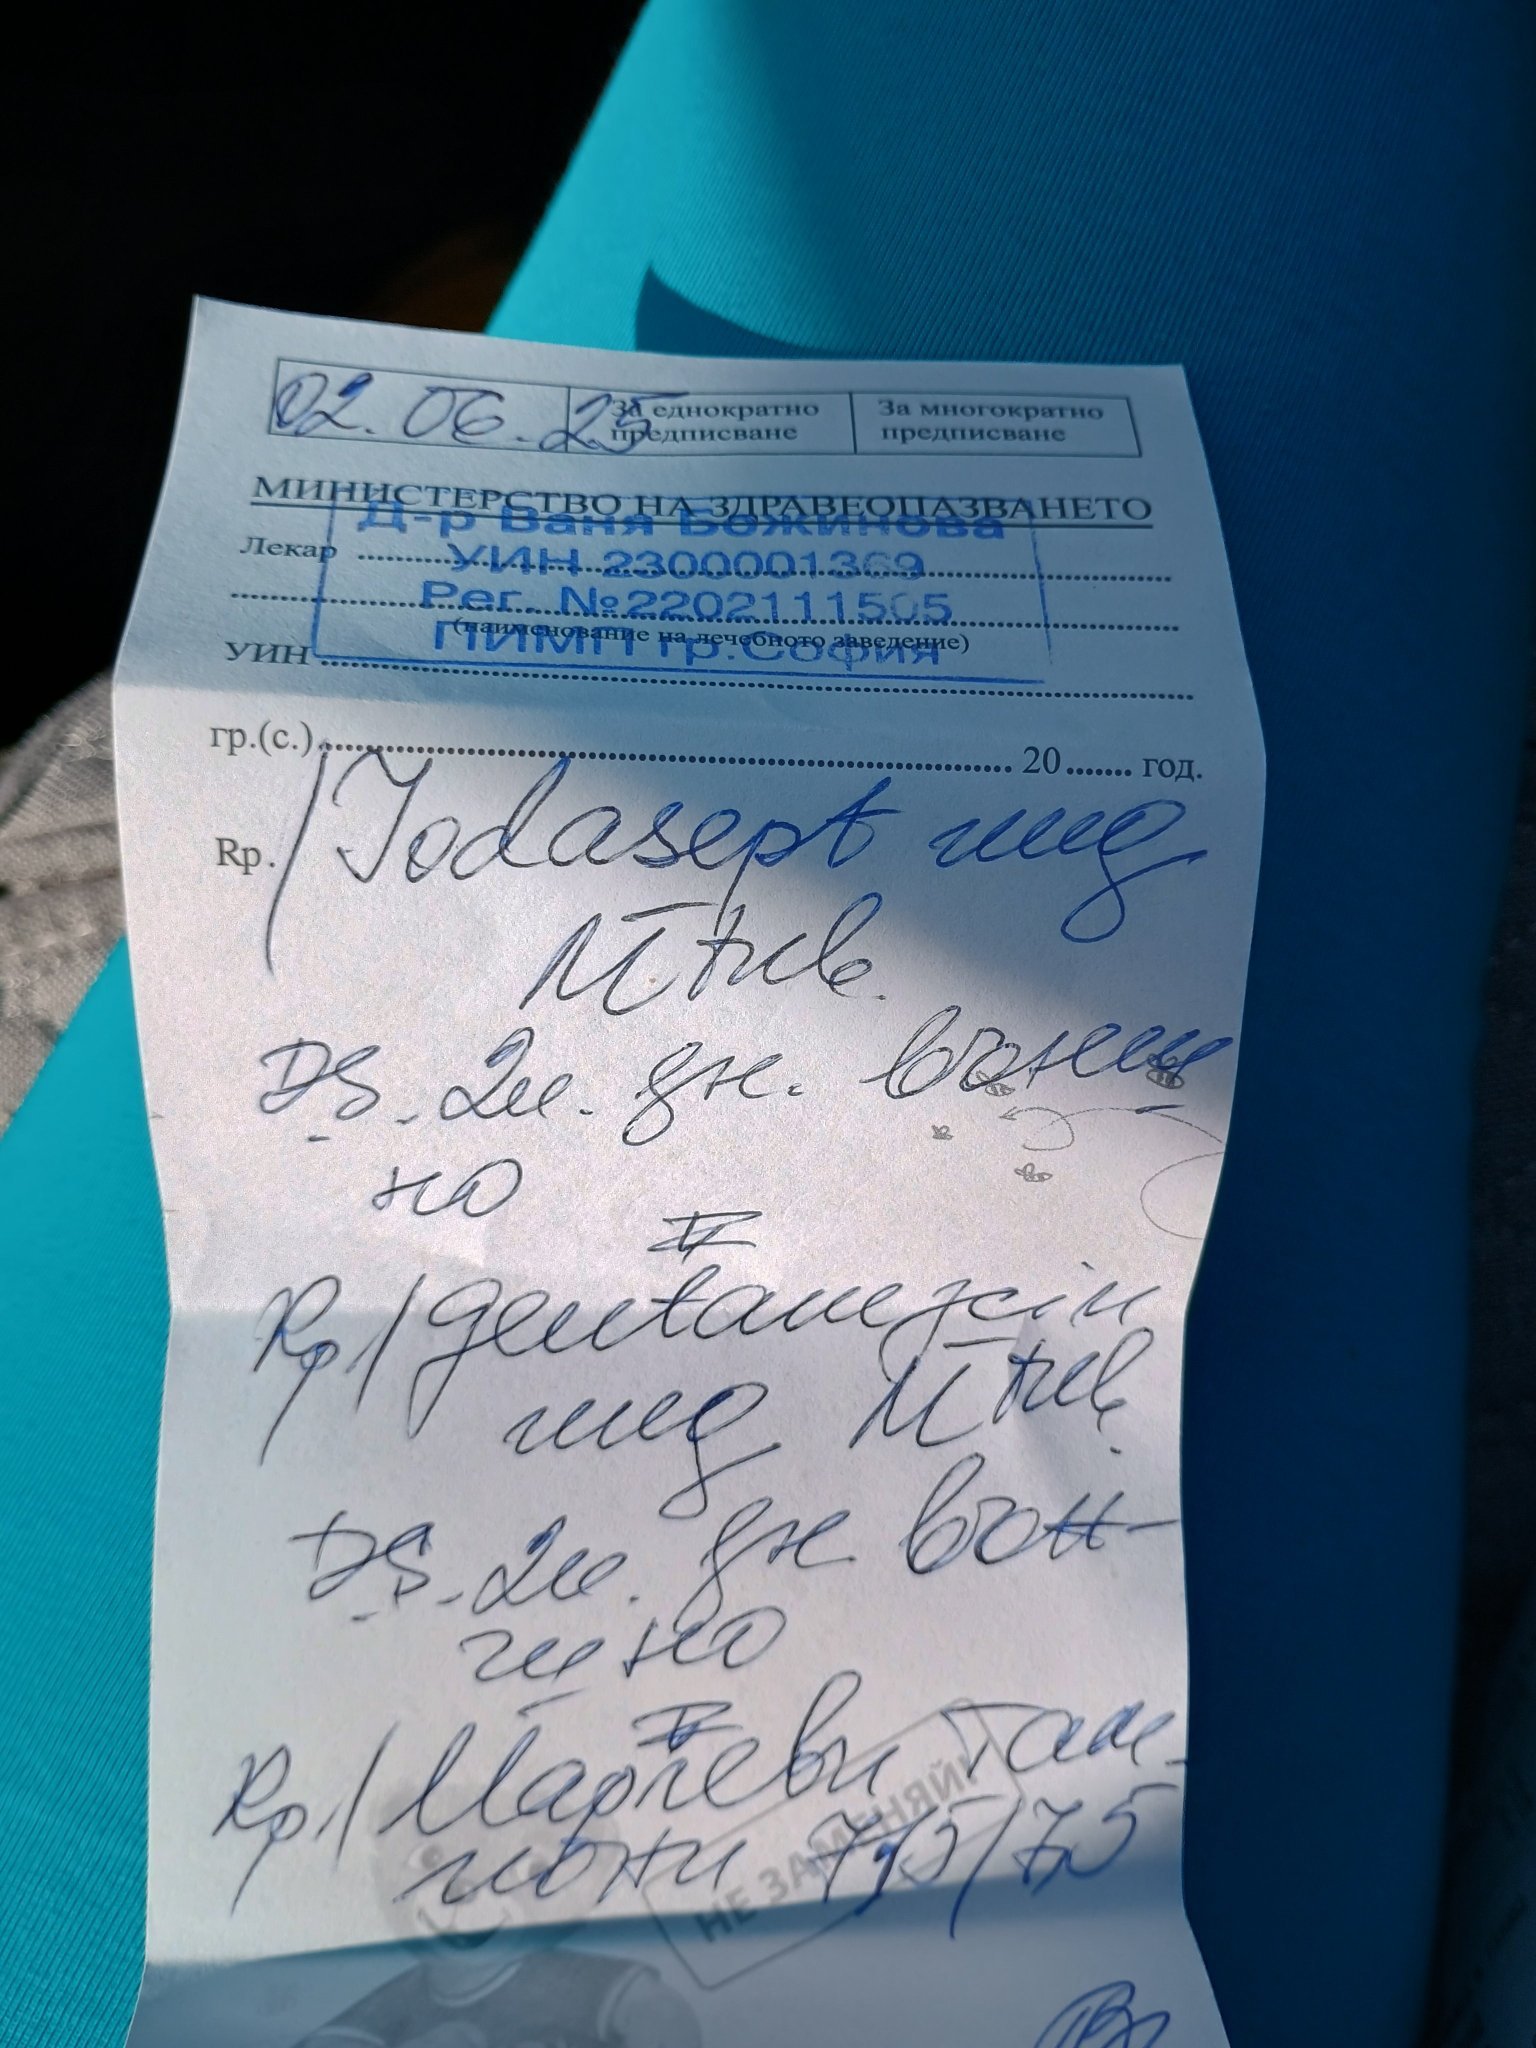 02.06.25
За еднократно
предписване
За многократно
предписване
МИНИСТЕРСТВО НА ЗДРАВЕОПАЗВАНЕТО
Д-р Ваня Божинова
Лекар
УИН 2300001369
Рег. №2202111505
(наименование на лечебното заведение)
ПИМП гр.София
УИН
гр.(с.) 20 год.
Rp. / Jodasept унг
II tub.
DS. 2x. дн. външ
но
Rp / gentamycin
унг II tub.
DS. 2x. дн. вън-
шно
Rp / Марлеви там-
пони 7,5/7,5
НЕ ЗАМЕНЯЙ!